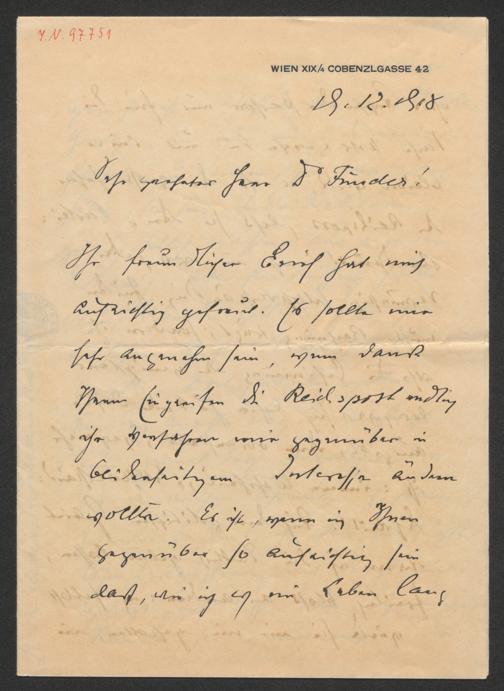 I.N. 97751
WIEN XIX/4 COBENZLGASSE 42
19.12.918
Sehr geehrter Herr Dr Funder!
Ihr freundlicher Brief hat mich
aufrichtig gefreut. Es sollte mir
sehr angenehm sein, wenn dank
Ihrem Eingreifen die Reichspost endlich
ihr Verfahren mir gegenüber in
beiderseitigem Interesse ändern
wollte. Es ist, wenn ich Ihnen
gegenüber so aufrichtig sein
darf, wie ich es ein Leben lang